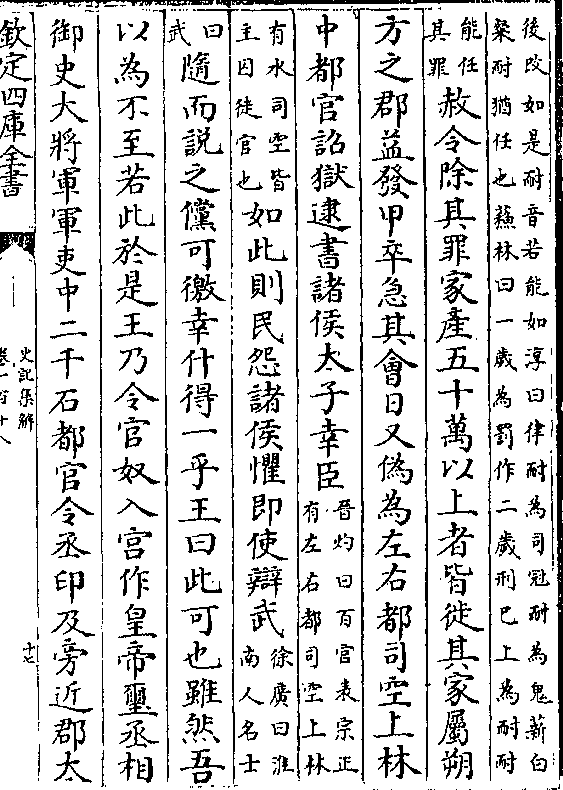 後改如是耐音若能如淳曰律耐為司冦耐為鬼薪白
粲耐猶任也蘇林曰一歲為罰作二歲刑已上為耐耐
能任
其罪
赦令除其罪家產五十萬以上者皆徙其家屬朔
方之郡益發甲卒急其會日又偽為左右都司空上林
中都官詔獄逮書諸侯太子幸臣
晉灼曰百官表宗正
有左右都司空上林
有水司空皆
主囚徒官也
如此則民怨諸侯懼即使辯武
徐廣曰淮
南人名士
曰
武
隨而說之儻可徼幸什得一乎王曰此可也雖然吾
以為不至若此於是王乃令官奴入宫作皇帝璽丞相
御史大將軍軍吏中二千石都官令丞印及旁近郡太
欽定四庫全書
史記集解
卷一百十八
十七